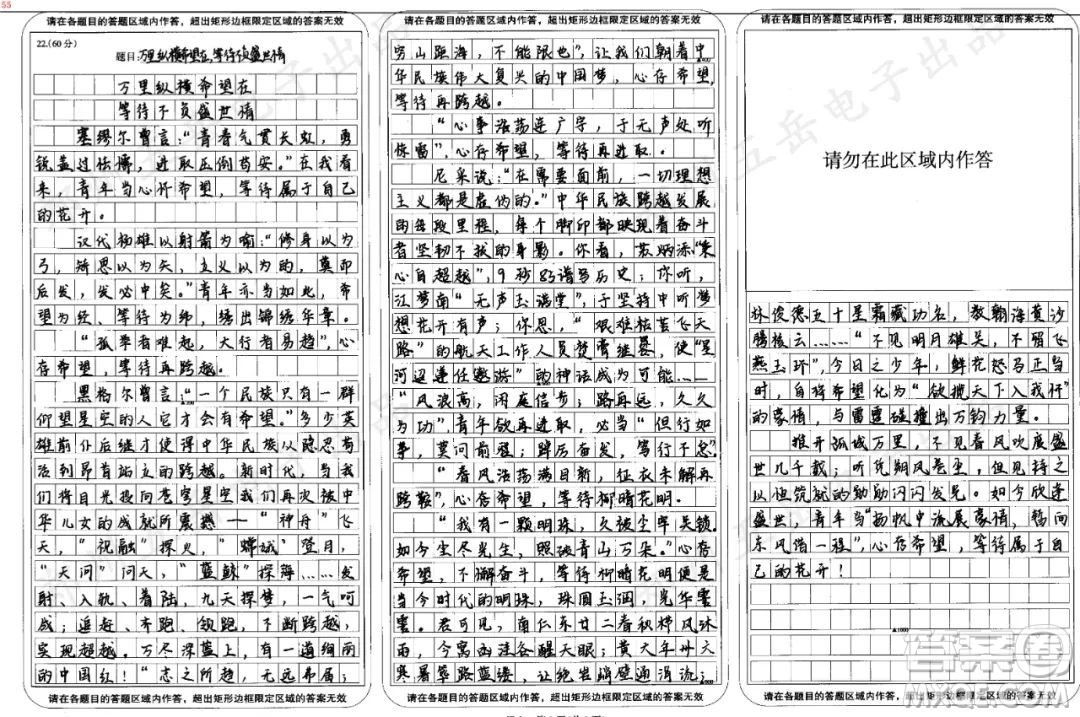 55
请在各题目的答题区域内作答，超出矩形边框限定区域的答案无效
22.(60分)
题目:万里纵横希望在,等待不负盛世情
万里纵横希望在
等待不负盛世情
塞缪尔曾言：“青春气贯长虹，勇
锐盖过怯懦，进取压倒苟安。”在我看
来，青年当心怀希望，等待属于自己
的花开。
汉代扬雄以射箭为喻：“修身以为
弓，矫思以为矢，立义以为的，奠而
后发，发必中矣。”青年亦当如此，希
望为经、等待为纬，绣出锦绣华章。
“孤举者难起，大行者易趋”，心
存希望，等待再跨越。
黑格尔曾言：“一个民族只有一群
仰望星空的人它才会有希望。”多少英
雄前仆后继才使得中华民族从隐忍苟
活到昂首站立的跨越。新时代，当我
们将目光投向苍穹星空我们再次被中
华儿女的成就所震撼——“神舟”飞
天，“祝融”探火，“嫦娥”登月，
“天河”问天，“蓝鲸”探海……发
射、入轨、着陆，九天探梦，一气呵
成；追赶、齐跑、领跑，不断跨越，
实现超越。万尽深蓝上，有一道绚丽
的中国红！“志之所趋，无远弗届；
请在各题目的答题区域内作答，超出矩形边框限定区域的答案无效
请在各题目的答题区域内作答，超出矩形边框限定区域的答案无效
穷山距海，不能限也”，让我们朝着中
华民族伟大复兴的中国梦，心存希望，
等待再跨越。
“心事浩荡连广宇，于无声处听
惊雷”，心存希望，等待再进取。
尼采说：“在需要面前，一切理想
主义都是虚伪的。”中华民族跨越发展
的每段里程，每个脚印都映现着奋斗
者坚韧不拔的身影。你看，苏炳添“秉
心自超越”，9秒83谱写历史；你听，
江梦南“无声玉满堂”，于坚持中听梦
想花开有声；你思，“艰难枯苦飞天
路”的航天工作人员焚膏继晷，使“星
河迢递任遨游”的神话成为可能……
“风浪高，闲庭信步；路再远，久久
为功”，青年欲再进取，必当“但行如
事，莫问前程；踔厉奋发，笃行不怠”
“春风浩荡满目新，征衣未解再
跨鞍”，心存希望，等待柳暗花明。
“我有一颗明珠，久被尘牢关锁。
如今尘尽光生，照破青山万朵。”心存
希望，不懈奋斗，等待柳暗花明便是
当今时代的明珠，珠圆玉润，光华霎
霎。君可见，南仁东廿二春秋栉风沐
雨，今寓西洼备醒天眼；黄大年卅六
寒暑筚路蓝缕，让绝岩峭壁通涓流；
请在各题目的答题区域内作答，超出矩形边框限定区域的答案无效
请在各题目的答题区域内作答，超出矩形边框限定区域的答案无效
请勿在此区域内作答
林俊德五十星霜藏功名，教朝海黄沙
腾核云……“不见明月雄关，不留飞
燕玉环”，今日之少年，鲜花怒马正当
时，自将希望化为“欲揽天下入我怀”
的豪情，与雷霆碰撞出万钧力量。
推开孤城万里，不见春风吹度盛
世几千载；听凭朔风卷空，但见持之
以恒筑就的勋勋闪闪发光。如今欣逢
盛世，青年当“扬帆中流展豪情，暂向
东风借一程”，心存希望，等待属于自
己的花开！
▲1000
请在各题目的答题区域内作答，超出矩形边框限定区域的答案无效
五岳电子出品
答案圈
MXQE.COM